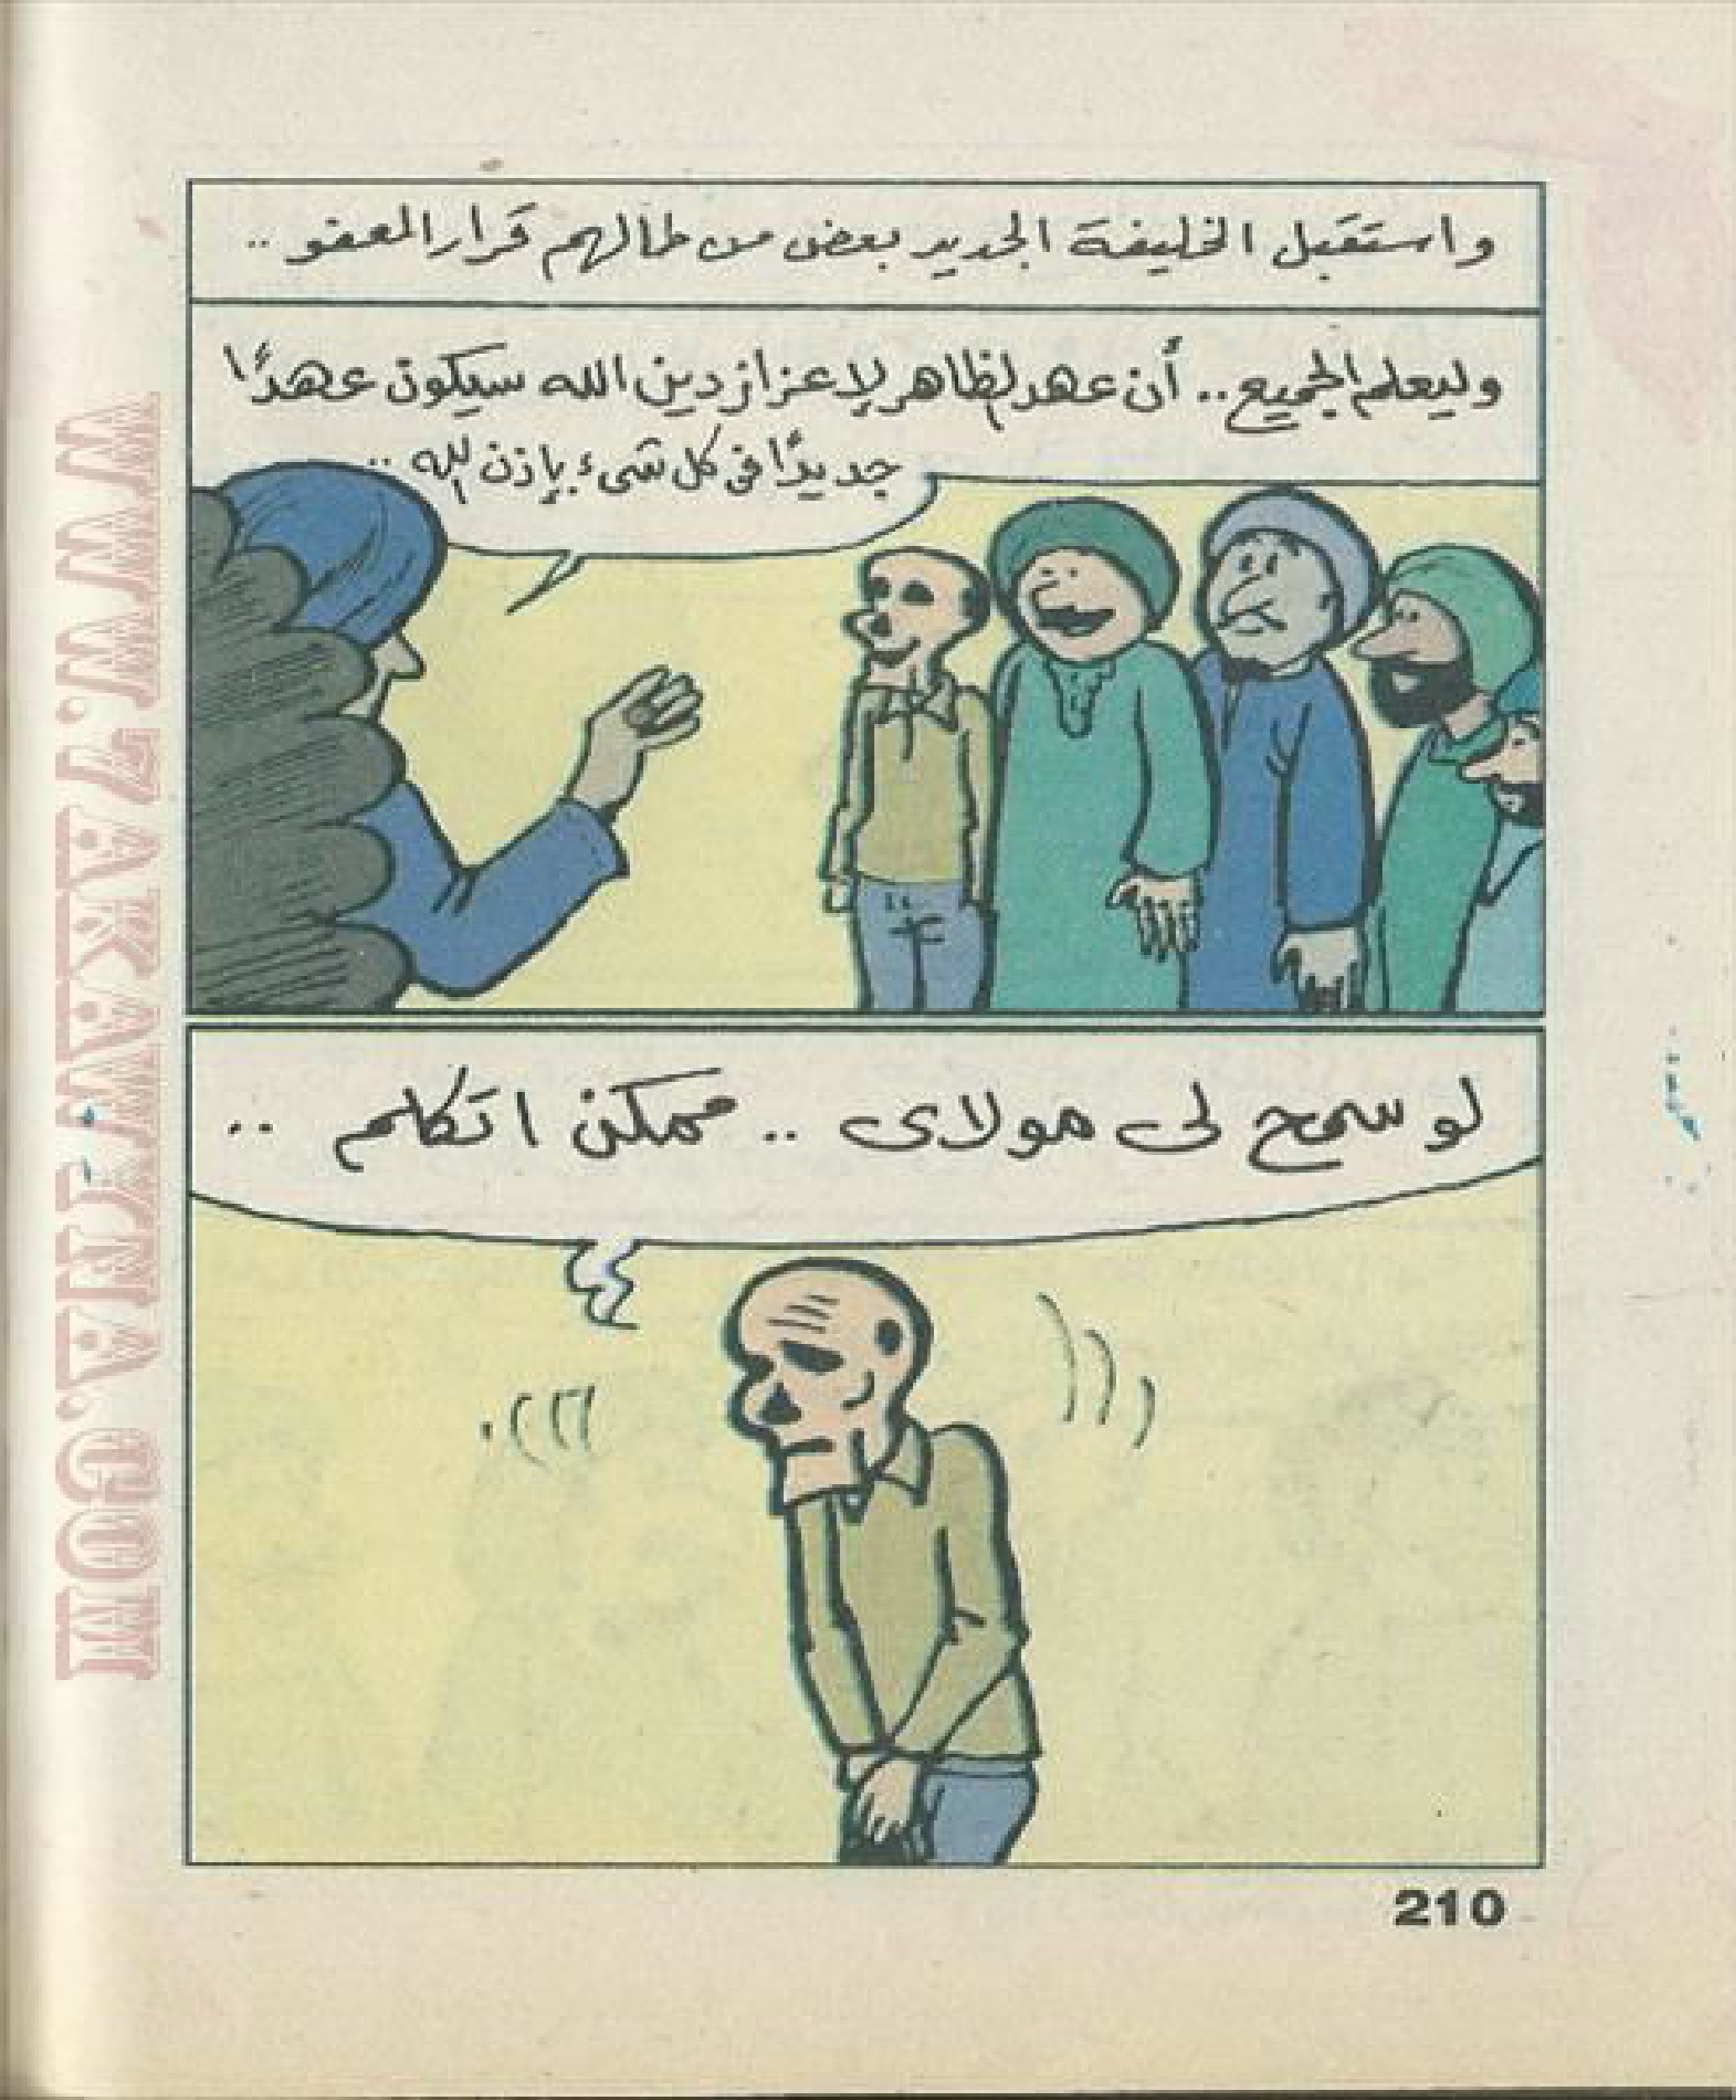 واستقبل الخليفة الجديد بعض من طالهم قرار العفو ..
وليعلم الجميع .. أن عهد الظاهر لإعزاز دين الله سيكون عهدًا
جديدًا في كل شيء بإذن الله ..
لو سمح لى مولاى .. ممكن اتكلم ..
210
WWW.7AKAWENA.COM